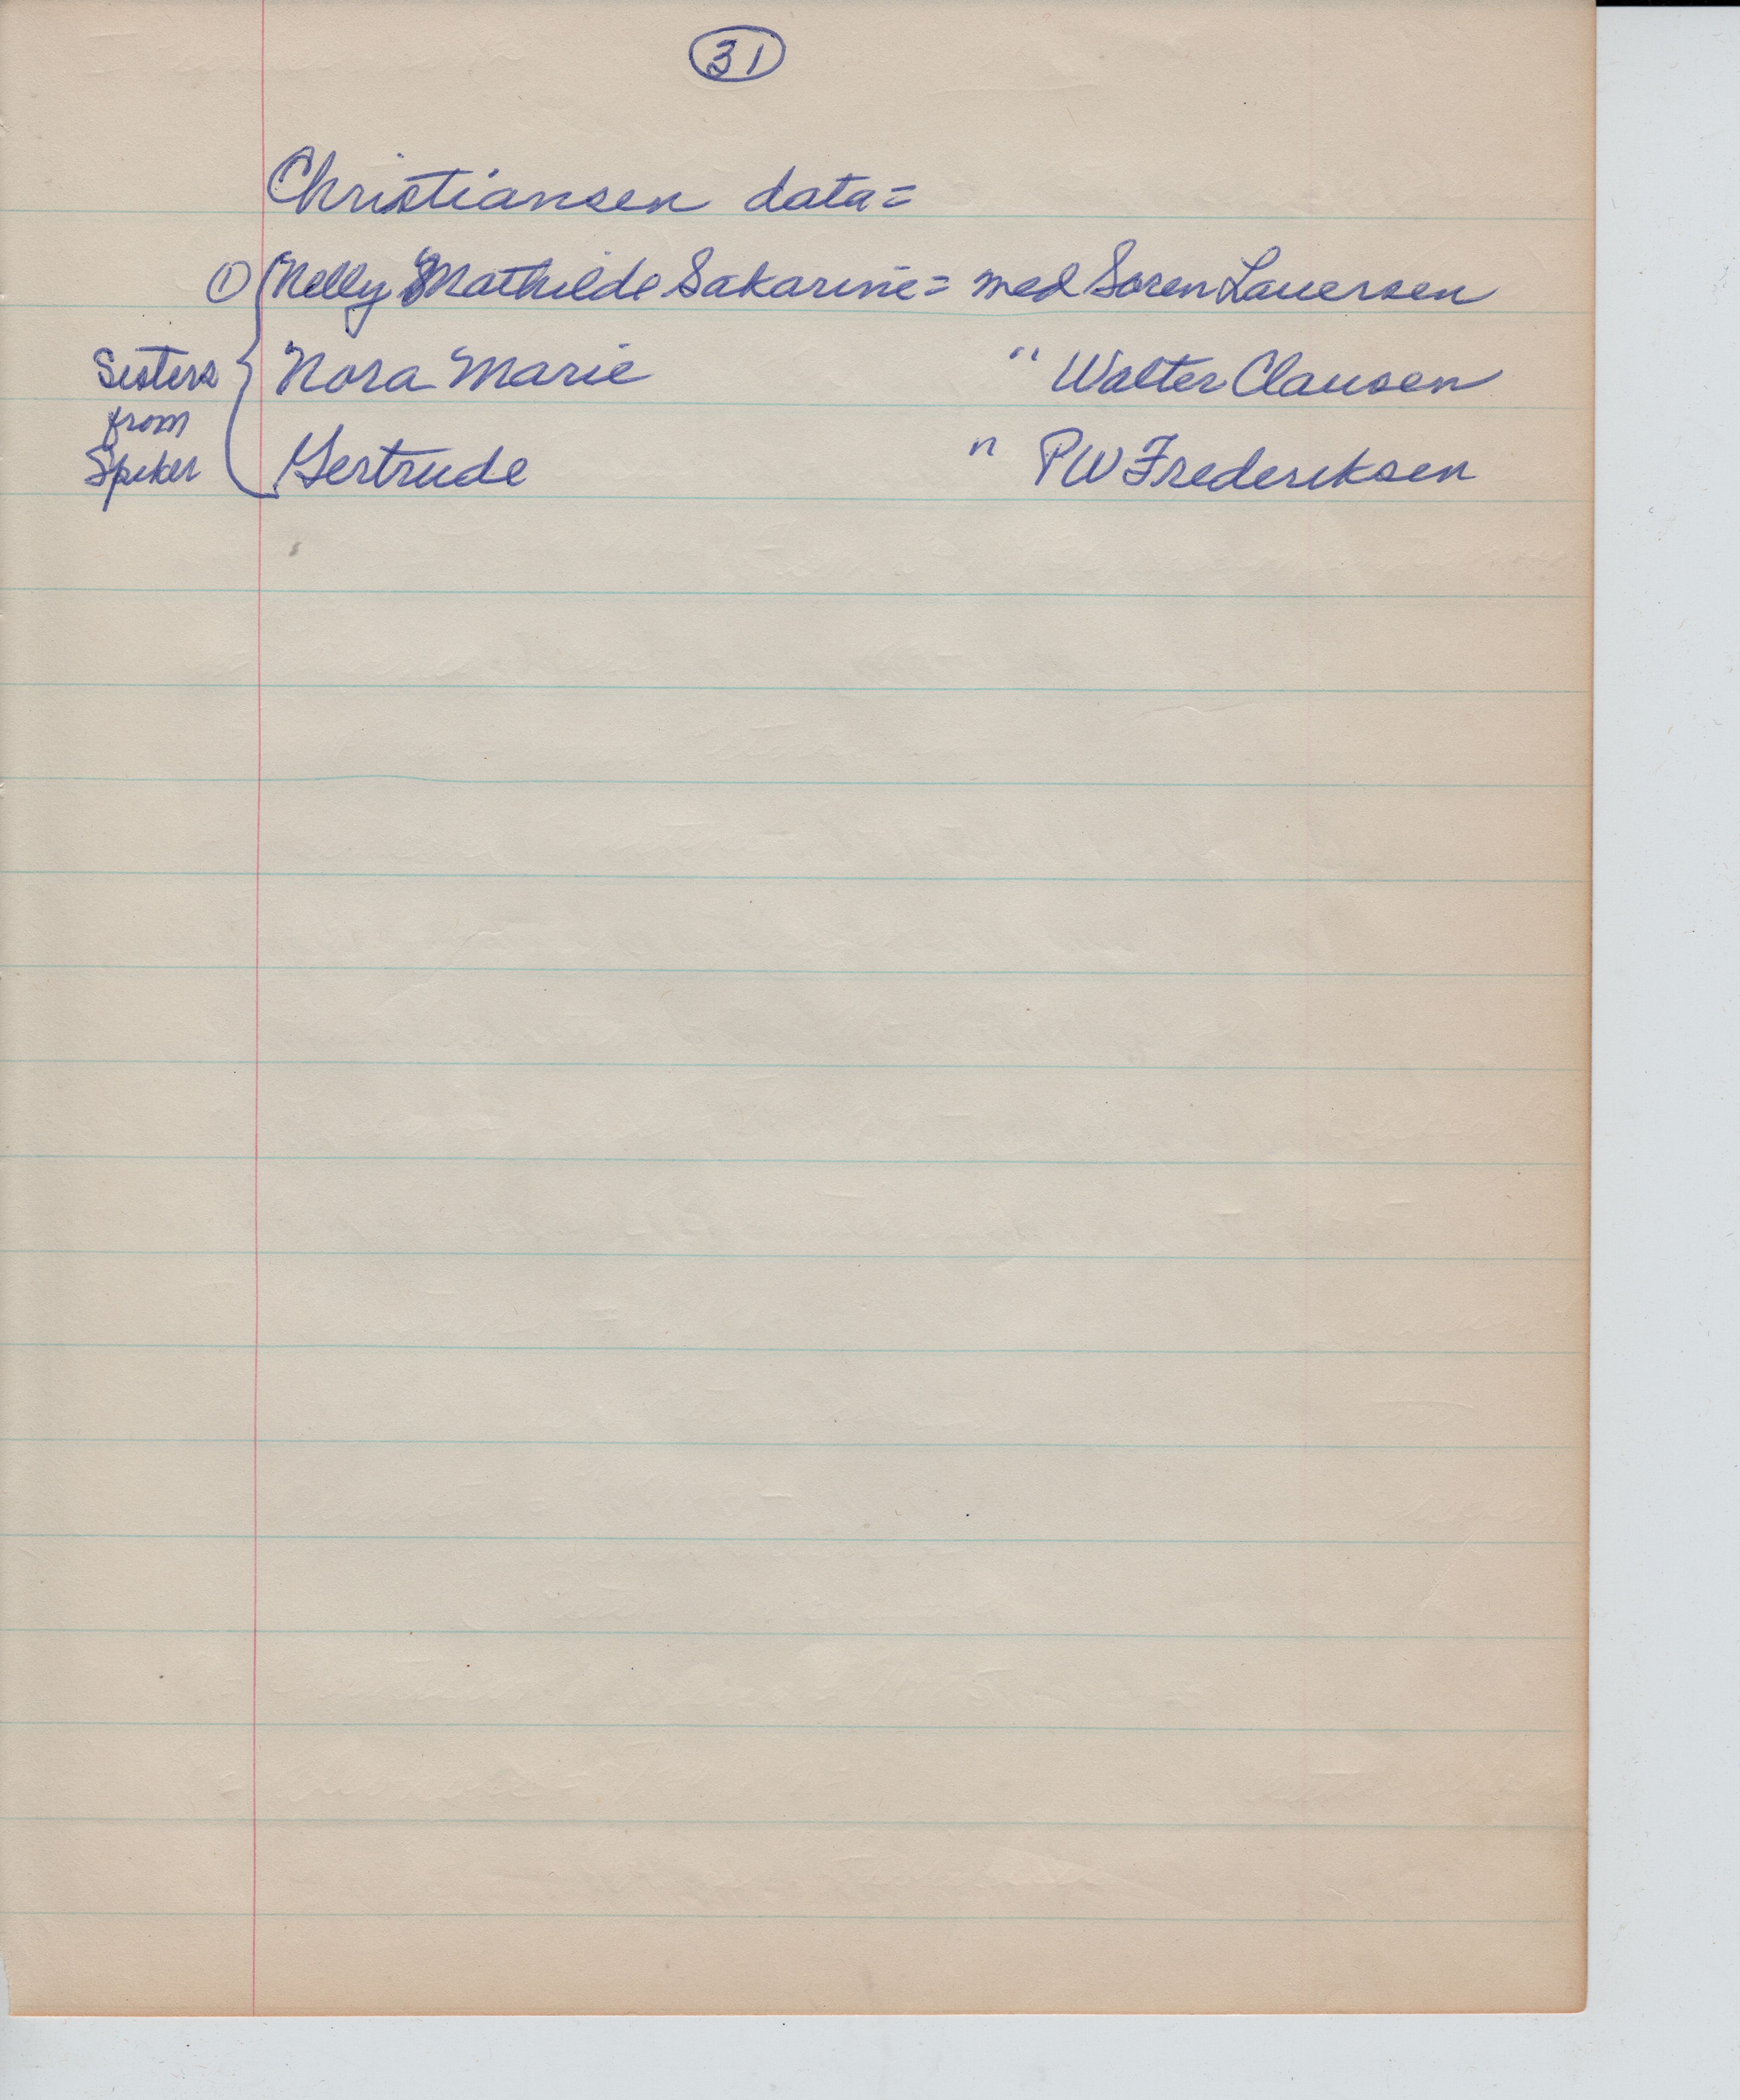 31
Christiansen data=
① Nelly Mathilde Sakarine = med Soren Lauersen
Sisters Nora Marie " Walter Clausen
from
Spiker Gertrude " PW Frederiksen